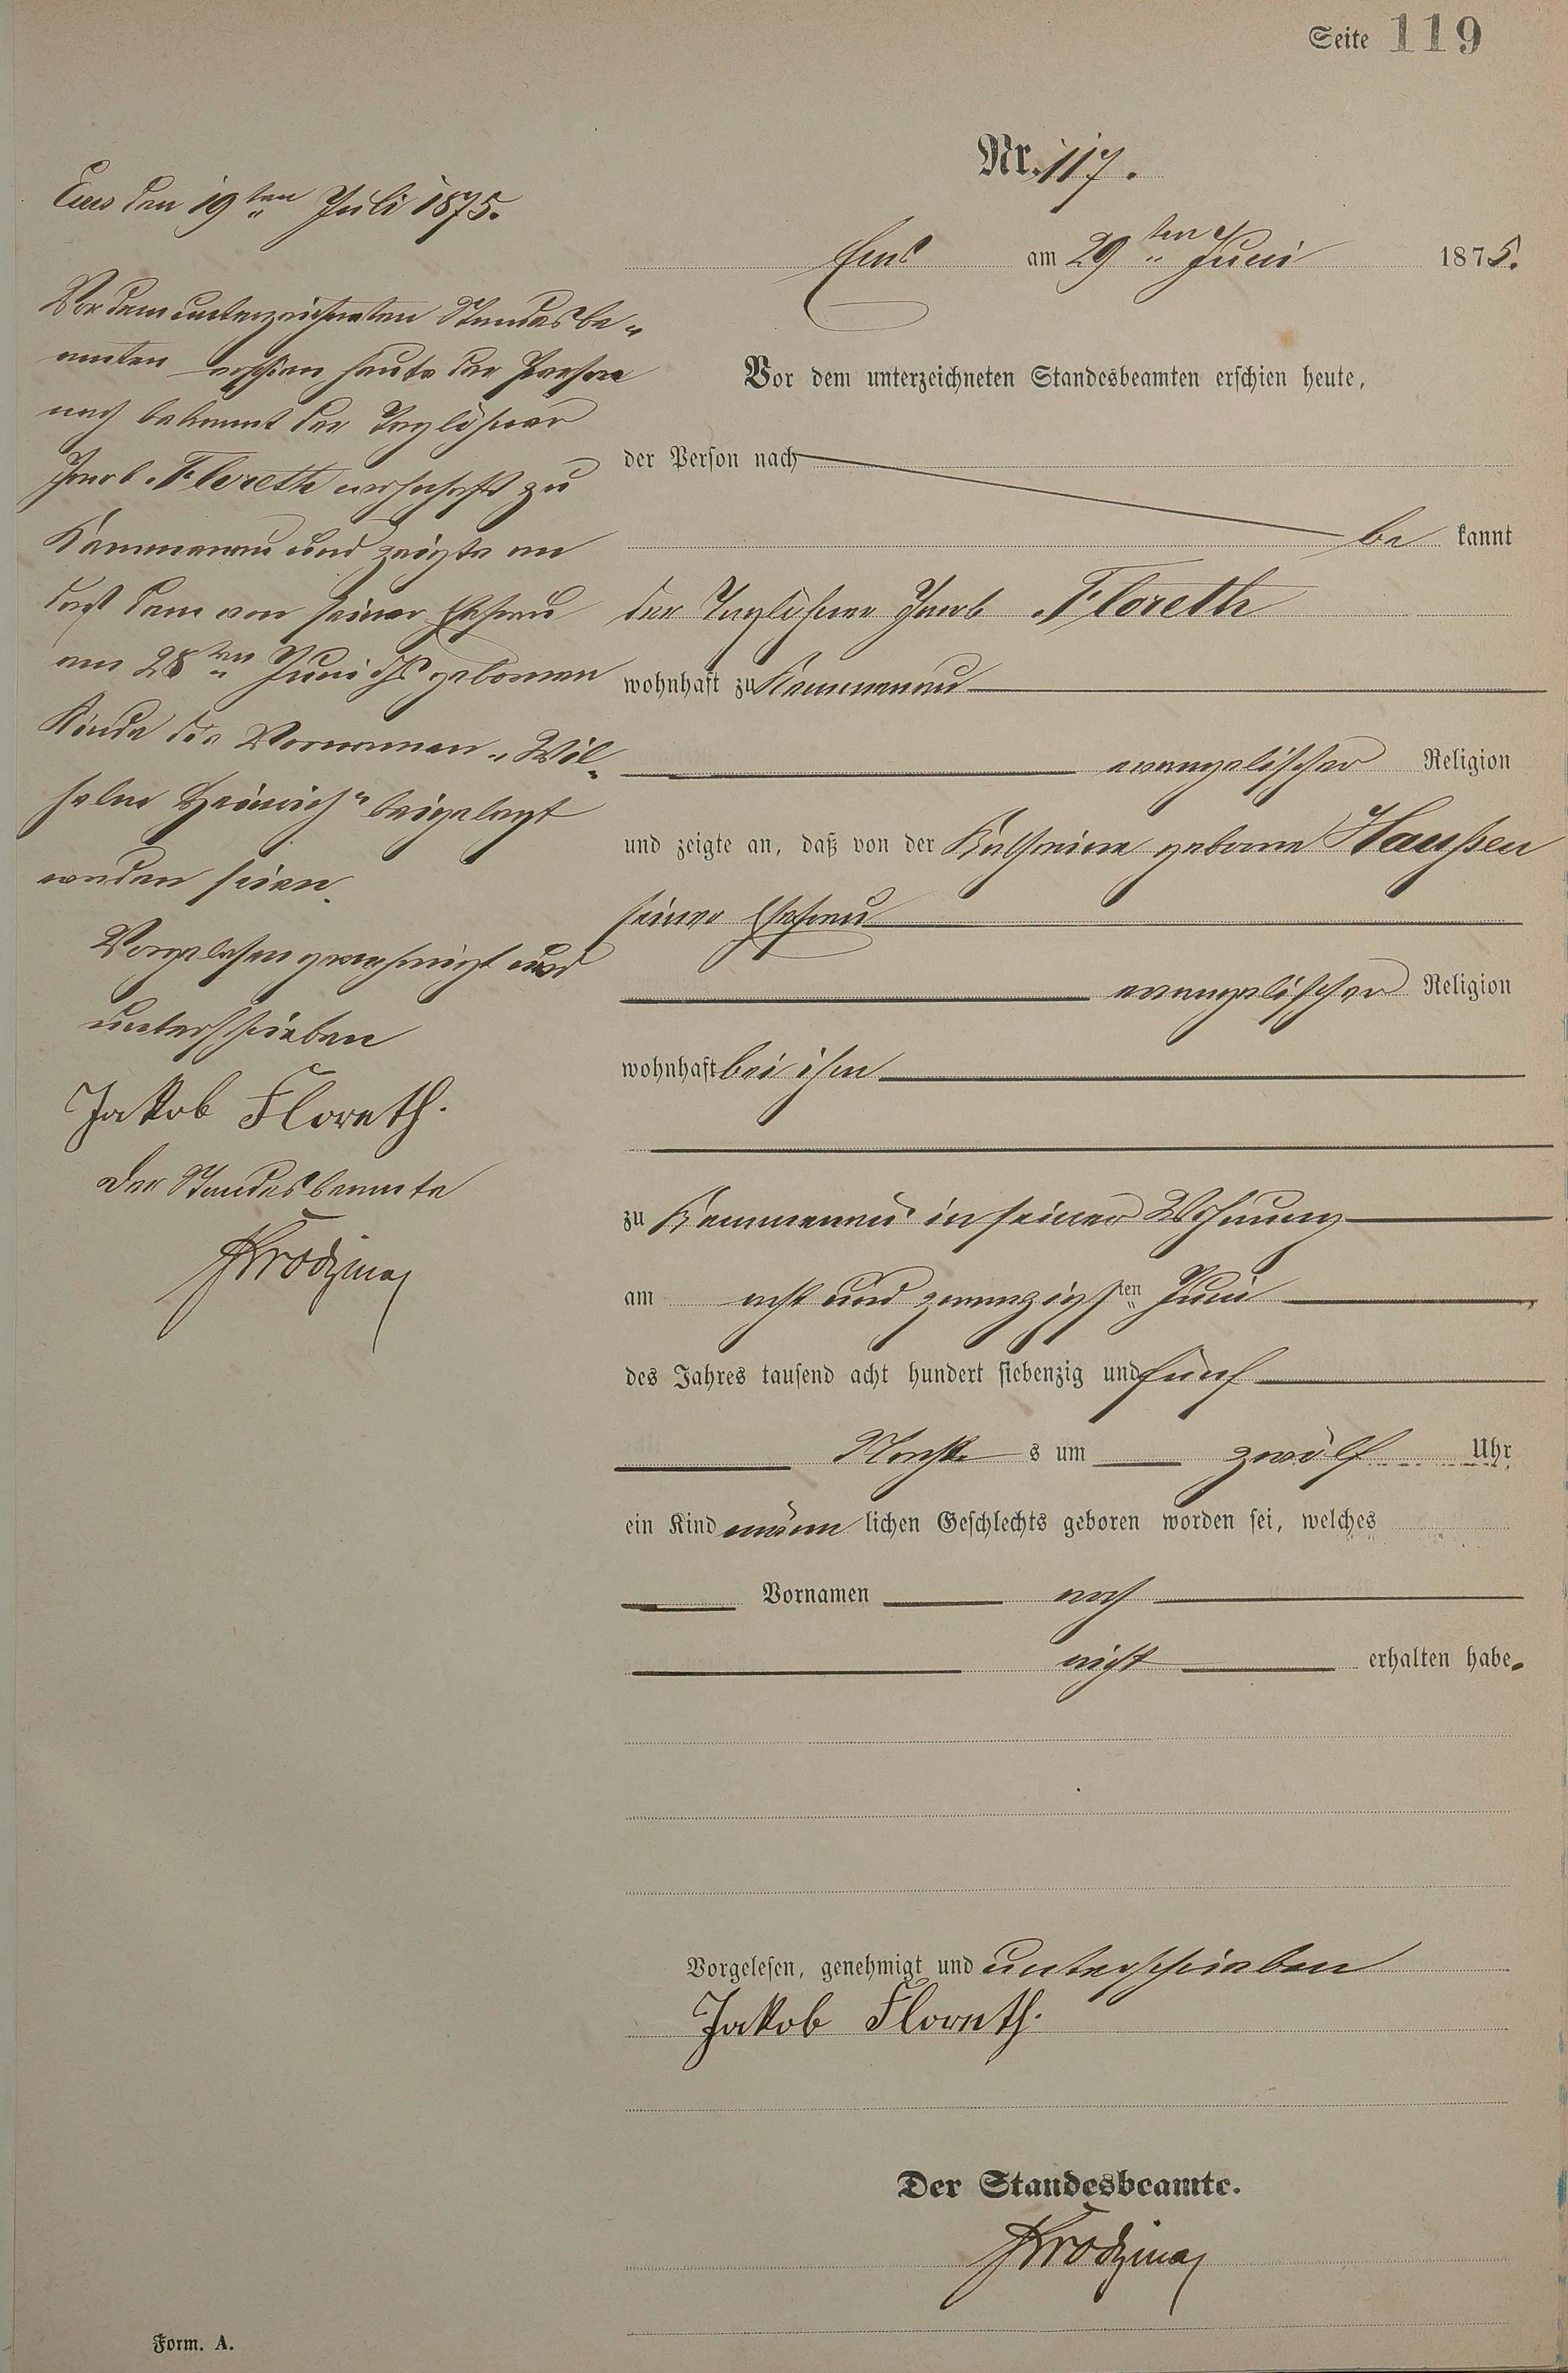 Seite 119
Nr. 117.
Ems am 29ten Juni 1875.
Vor dem unterzeichneten Standesbeamten erschien heute,
der Person nach
be kannt
der Taglöhner Jacob Floreth
wohnhaft zu Kemmenau
evangelischer Religion
und zeigte an, daß von der Katharina geborne Haußen
seiner Ehefrau
evangelischer Religion
wohnhaft bei ihm
zu Kemmenau in seiner Wohnung
am acht und zwanzigsten Juni
des Jahres tausend acht hundert siebenzig und fünf
Nachts um zwölf Uhr
ein Kind männ lichen Geschlechts geboren worden sei, welches
Vornamen noch
nicht erhalten habe.
Vorgelesen, genehmigt und unterschrieben
Jakob Floreth.
Der Standesbeamte.
Ems den 19ten Juli 1875.
Vor dem unterzeichneten Standesbe-
amten erschien heute der Person
nach bekannt der Taglöhner
Jacob Floreth wohnhaft zu
Kemmenau und zeigte an
daß dem von seiner Ehefrau
am 28ten Juni ds gebornen
Kinde die Vornamen „Wil-
helm Heinrich" beigelegt
worden seien.
Vorgelesen genehmigt und
unterschrieben
Jakob Floreth.
Der Standesbeamte
Form. A.